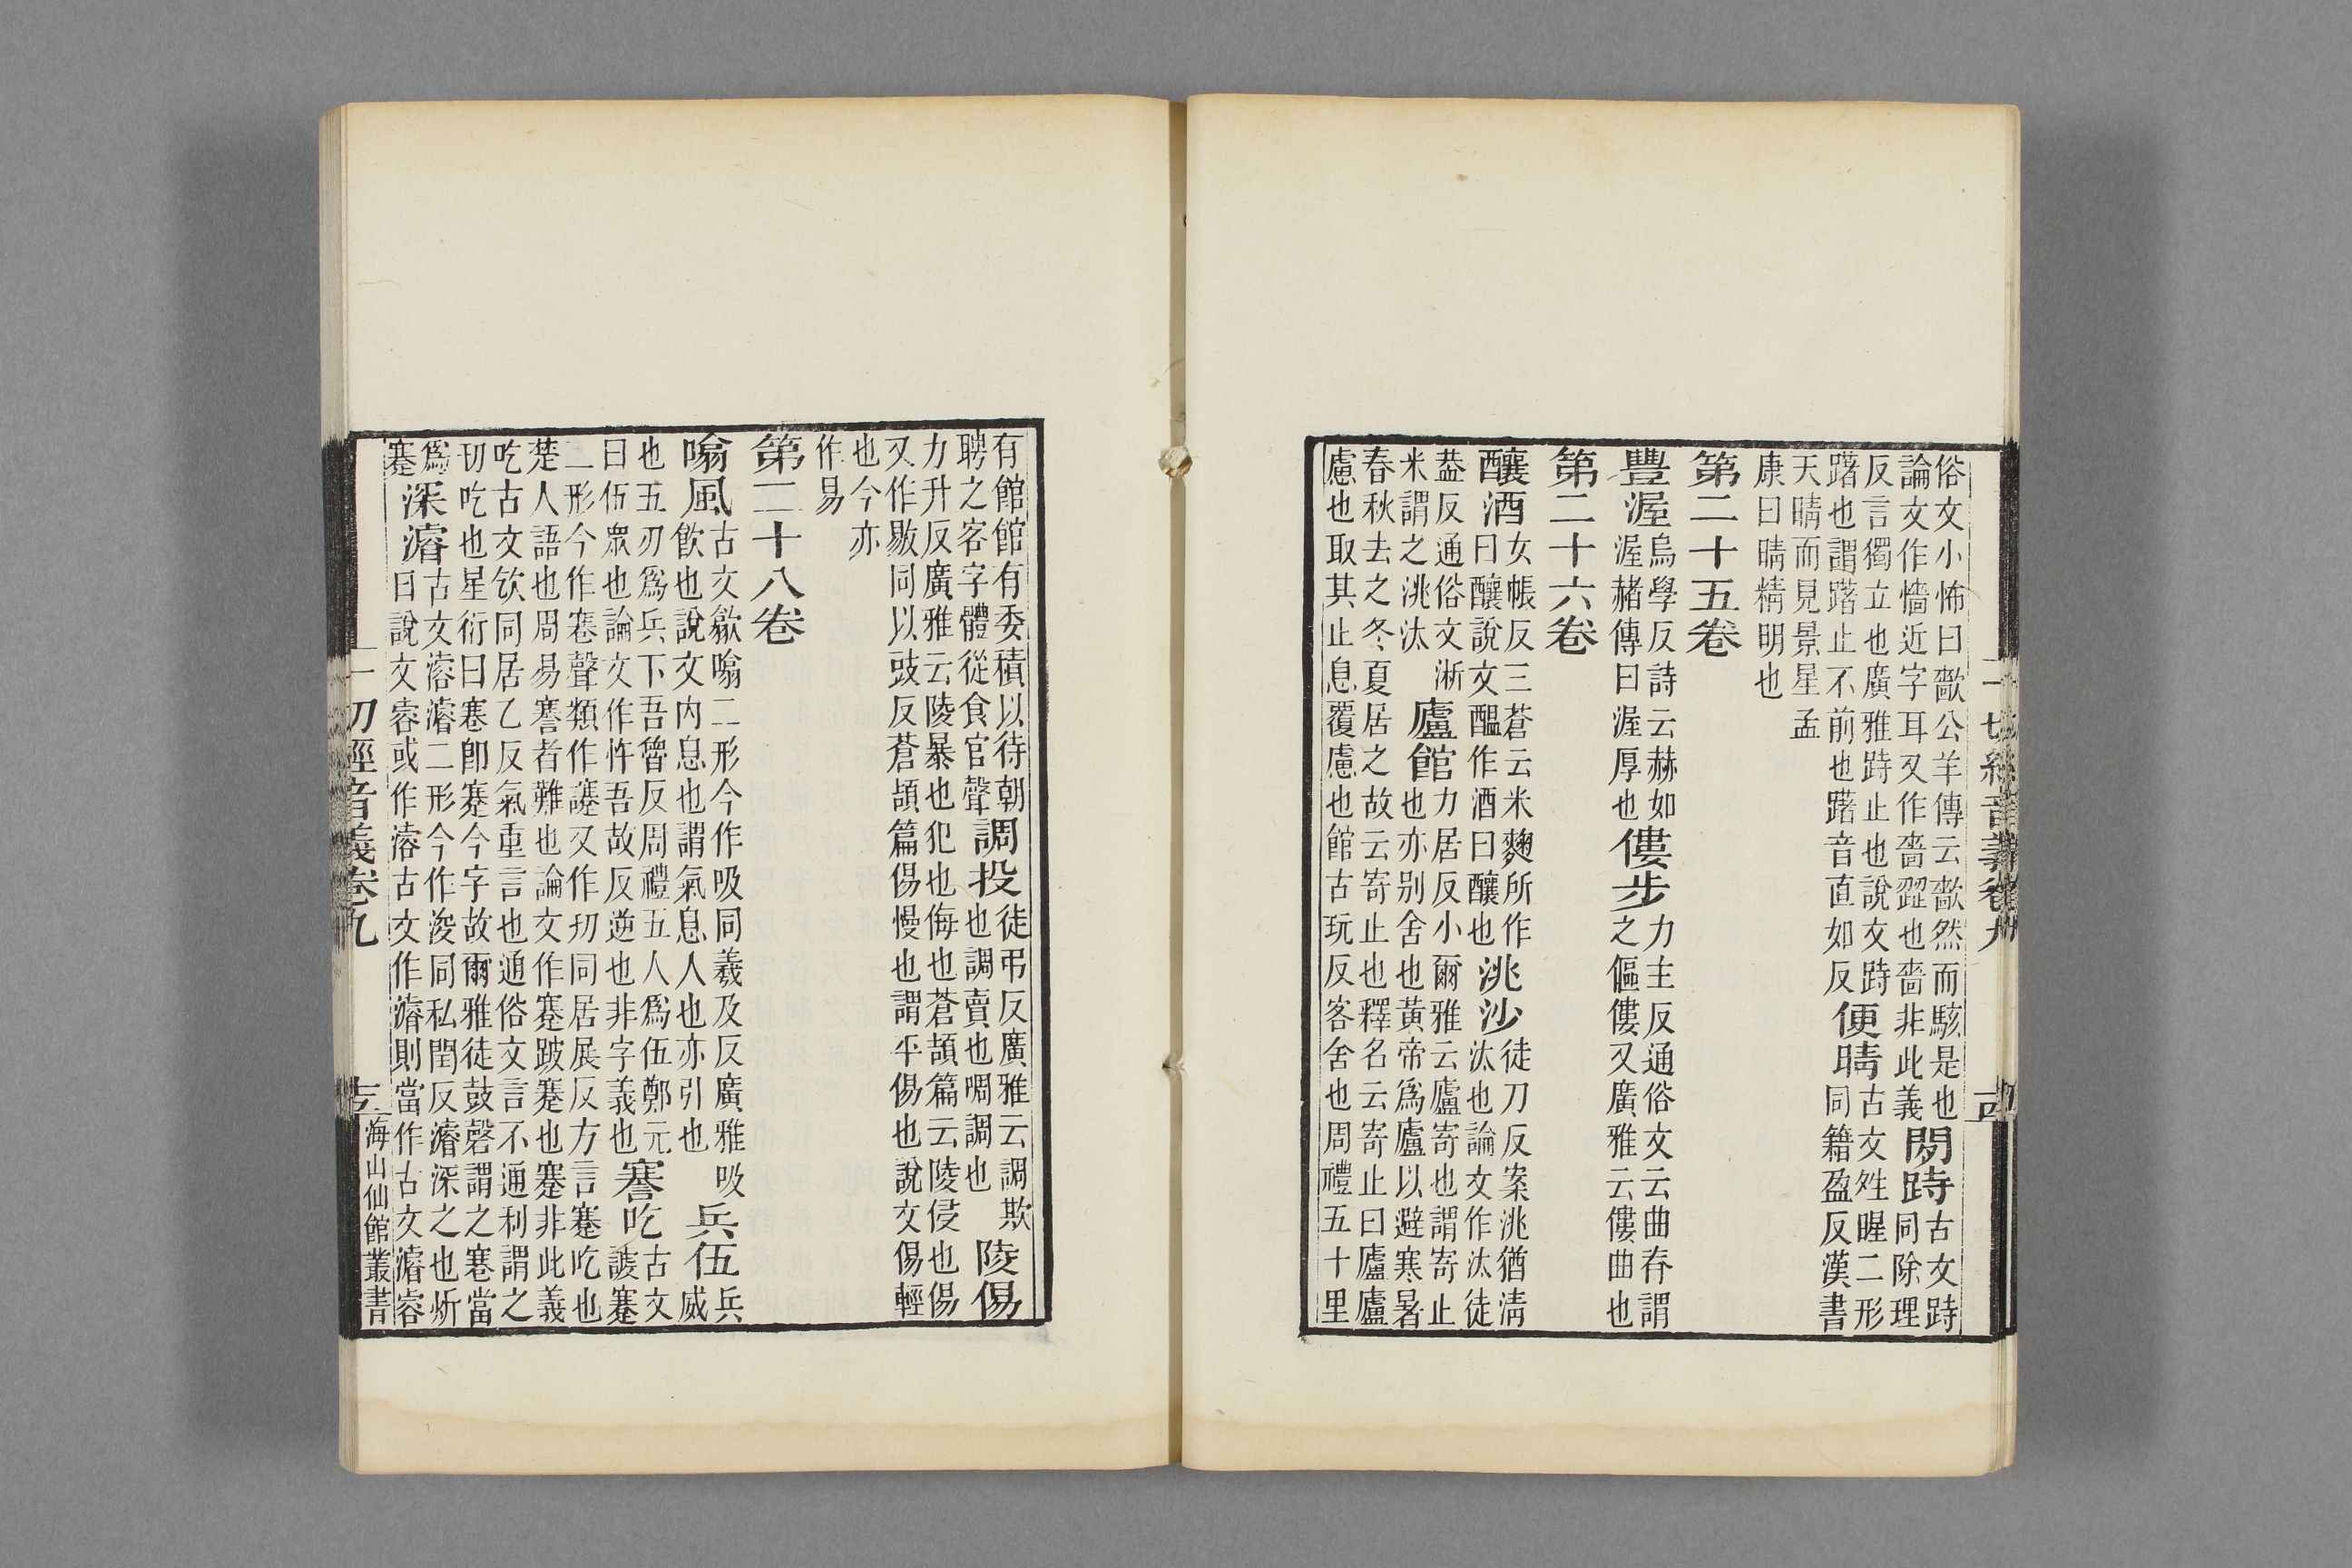 俗文小怖曰歚公羊傳云歚然而駭是也
論文作懎近字耳又作嗇澀也嗇非此義
閡跱
古文跱
同除理
反言獨立也廣雅跱止也說文跱
躇也謂躇止不前也躇音直如反
便晴
古文夝暒二形
同籍盈反漢書
天晴而見景星孟
康曰晴精明也
第二十五卷
豐渥
烏學反詩云赫如
渥赭傳曰渥厚也
僂步
力主反通俗文云曲脊謂
之傴僂又廣雅云僂曲也
第二十六卷
釀酒
女帳反三蒼云米麴所作
曰釀說文醞作酒曰釀也
洮沙
徒刀反案洮猶清
汰也論文作汰徒
葢反通俗文淅
米謂之洮汰
廬館
力居反小爾雅云廬寄也謂寄止
也亦别舍也黄帝爲廬以避寒暑
春秋去之冬夏居之故云寄止也釋名云寄止曰廬廬
慮也取其止息覆慮也館古玩反客舍也周禮五十里
一切經音義卷九
有館館有委積以待朝
聘之客字體從食官聲
調投
徒弔反廣雅云調欺
也調賣也啁調也
陵傷
力升反廣雅云陵暴也犯也侮也蒼頡篇云陵侵也傷
又作敭同以豉反蒼頡篇傷慢也謂平傷也說文傷輕
也今亦
作易
第二十八卷
噏風
古文歙噏二形今作吸同羲及反廣雅吸
飲也說文内息也謂氣息人也亦引也
兵伍
兵威
也五刃爲兵下吾魯反周禮五人爲伍鄭元
曰伍眾也論文作忤吾故反逆也非字義也
謇吃
古文
謇蹇
二形今作寋聲類作䜐又作㓞同居展反方言蹇吃也
楚人語也周易謇者難也論文作蹇跛蹇也蹇非此義
吃古文欽同居乙反氣重言也通俗文言不通利謂之
㓞吃也星衍曰寋卽蹇今字故爾雅徒鼓磬謂之寋當
爲
蹇
深濬
古文濬二形今作浚同私閏反濬深之也
曰說文容或作濬古文作濬則當作古文濬
一切經音義卷九
海山仙館叢書